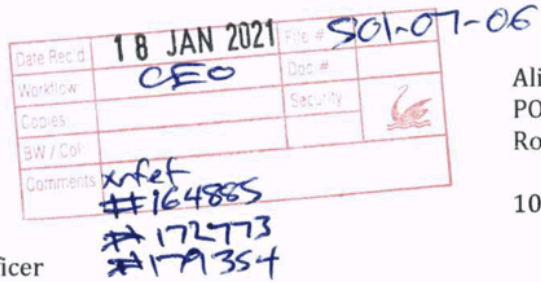 Date Rec'd 18 JAN 2021 File # S01-07-06
Workflow CEO Doc #
Copies Security
BW / Col
Comments xrfef
#164885
#172773
#179354
Ali
PO
Ro
10
ficer